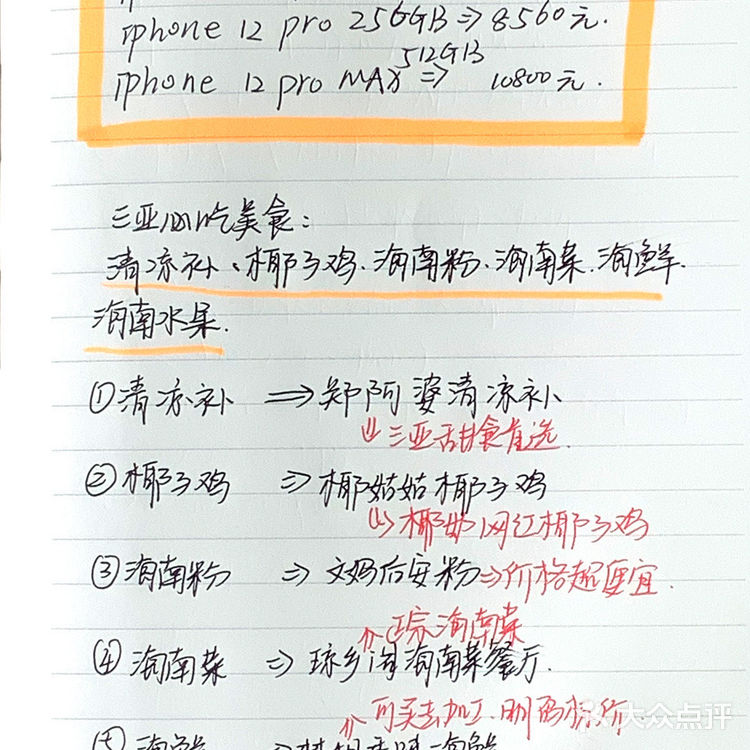 iphone 12 pro 256GB ⇒ 8560元.
512GB
iphone 12 pro MAX ⇒ 10800元.
三亚必吃美食:
清凉补、椰子鸡、海南粉、海南菜、海鲜、
海南水果.
①清凉补 ⇒ 郑阿婆清凉补
⇓三亚甜食首选.
②椰子鸡 ⇒ 椰姑姑椰子鸡
⇓网红椰子鸡
③海南粉 ⇒ 文妈后安粉⇒价格超便宜.
⇑正宗海南菜
④海南菜 ⇒ 琼乡阁海南菜餐厅.
⇑可买去加工.明码标价.
大众点评